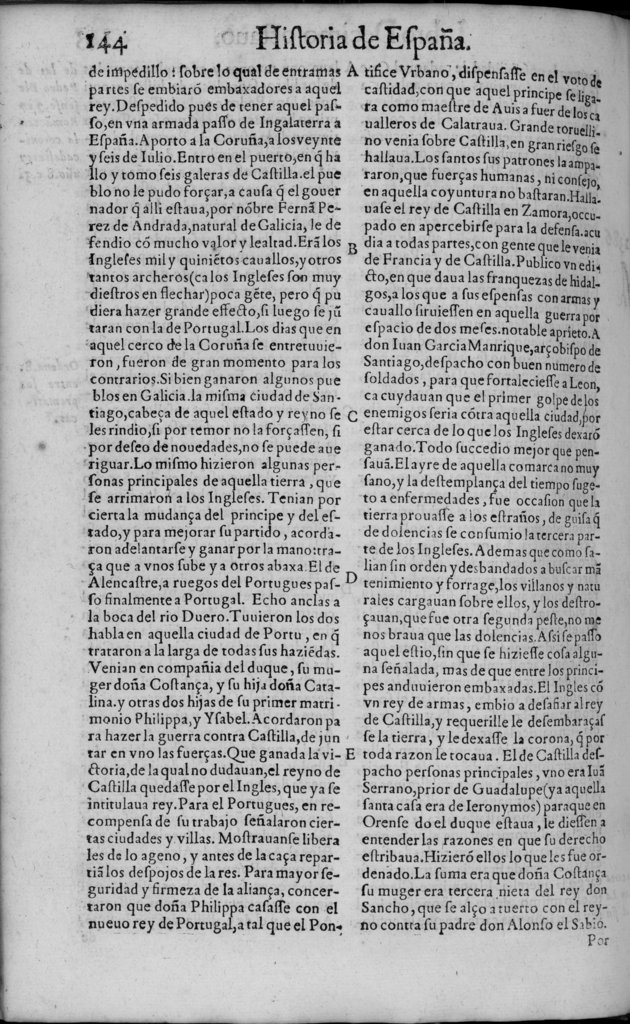 144 Hiſtoria de Eſpaña.
de impedillo: ſobre lo qual de entramas
partes ſe embiarō embaxadores a aquel
rey. Deſpedido pues de tener aquel paſ-
ſo, en vna armada paſſo de Ingalaterra a
Eſpaña. Aporto a la Coruña, a los veynte
y ſeis de Iulio. Entro en el puerto, en q̃ ha
llo y tomo ſeis galeras de Caſtilla. el pue
blo no le pudo forçar, a cauſa q̃ el gouer
nador q̃ alli eſtaua, por nōbre Fernā Pe-
rez de Andrada, natural de Galicia, le de
fendio cō mucho valor y lealtad. Erā los
Ingleſes mil y quiniētos cauallos, y otros
tantos archeros (ca los Ingleſes ſon muy
dieſtros en flechar) poca gēte, pero q̃ pu
diera hazer grande effecto, ſi luego ſe jū
taran con la de Portugal. Los dias que en
aquel cerco de la Coruña ſe entretuuie-
ron, fueron de gran momento para los
contrarios. Si bien ganaron algunos pue
blos en Galicia. la miſma ciudad de San-
tiago, cabeça de aquel eſtado y reyno ſe
les rindio, ſi por temor no la forçaſſen, ſi
por deſeo de nouedades, no ſe puede aue
riguar. Lo miſmo hizieron algunas per-
ſonas principales de aquella tierra, que
ſe arrimaron a los Ingleſes. Tenian por
cierta la mudança del principe y del eſ-
tado, y para mejorar ſu partido, acorda-
ron adelantarſe y ganar por la mano: tra-
ça que a vnos ſube y a otros abaxa. El de
Alencaſtre, a ruegos del Portugues paſ-
ſo finalmente a Portugal. Echo anclas a
la boca del rio Duero. Tuuieron los dos
habla en aquella ciudad de Portu, en q̃
trataron a la larga de todas ſus haziēdas.
Venian en compañia del duque, ſu mu-
ger doña Coſtança, y ſu hija doña Cata-
lina. y otras dos hijas de ſu primer matri-
monio Philippa, y Yſabel. Acordaron pa
ra hazer la guerra contra Caſtilla, de jun
tar en vno las fuerças. Que ganada la vi-
ctoria, de la qual no dudauan, el reyno de
Caſtilla quedaſſe por el Ingles, que ya ſe
intitulaua rey. Para el Portugues, en re-
compenſa de ſu trabajo ſeñalaron cier-
tas ciudades y villas. Moſtrauanſe libera
les de lo ageno, y antes de la caça repar-
tiā los deſpojos de la res. Para mayor ſe-
guridad y firmeza de la aliança, concer-
taron que doña Philippa caſaſſe con el
nueuo rey de Portugal, a tal que el Pon-
A
B
C
D
E
tifice Vrbano, diſpenſaſſe en el voto de
caſtidad, con que aquel principe ſe liga-
ra como maeſtre de Auis a fuer de los ca
ualleros de Calatraua. Grande toruelli-
no venia ſobre Caſtilla, en gran rieſgo ſe
hallaua. Los ſantos ſus patrones la ampa-
raron, que fuerças humanas, ni conſejo,
en aquella coyuntura no baſtaran. Halla-
uaſe el rey de Caſtilla en Zamora, occu-
pado en apercebirſe para la defenſa. acu
dia a todas partes, con gente que le venia
de Francia y de Caſtilla. Publico vn edi-
cto, en que daua las franquezas de hidal-
gos, a los que a ſus eſpenſas con armas y
cauallo ſiruieſſen en aquella guerra por
eſpacio de dos meſes. notable aprieto. A
don Iuan Garcia Manrique, arçobiſpo de
Santiago, deſpacho con buen numero de
ſoldados, para que fortalecieſſe a Leon,
ca cuydauan que el primer golpe de los
enemigos ſeria cōtra aquella ciudad, por
eſtar cerca de lo que los Ingleſes dexarō
ganado. Todo ſuccedio mejor que pen-
ſauā. El ayre de aquella comarca no muy
ſano, y la deſtemplança del tiempo ſuge-
to a enfermedades, fue occaſion que la
tierra prouaſſe a los eſtraños, de guiſa q̃
de dolencias ſe conſumio la tercera par-
te de los Ingleſes. Ademas que como ſa-
lian ſin orden y desbandados a buſcar mā
tenimiento y forrage, los villanos y natu
rales cargauan ſobre ellos, y los deſtro-
çauan, que fue otra ſegunda peſte, no me
nos braua que las dolencias. Aſsi ſe paſſo
aquel eſtio, ſin que ſe hizieſſe coſa algu-
na ſeñalada, mas de que entre los princi-
pes anduuieron embaxadas. El Ingles cō
vn rey de armas, embio a deſafiar al rey
de Caſtilla, y requerille le deſembaraçaſ
ſe la tierra, y le dexaſſe la corona, q̃ por
toda razon le tocaua. El de Caſtilla deſ-
pacho perſonas principales, vno era Iuā
Serrano, prior de Guadalupe (ya aquella
ſanta caſa era de Ieronymos) para que en
Orenſe do el duque eſtaua, le dieſſen a
entender las razones en que ſu derecho
eſtribaua. Hizierō ellos lo que les fue or-
denado. La ſuma era que doña Coſtança
ſu muger era tercera nieta del rey don
Sancho, que ſe alço a tuerto con el rey-
no contra ſu padre don Alonſo el Sabio.
Por